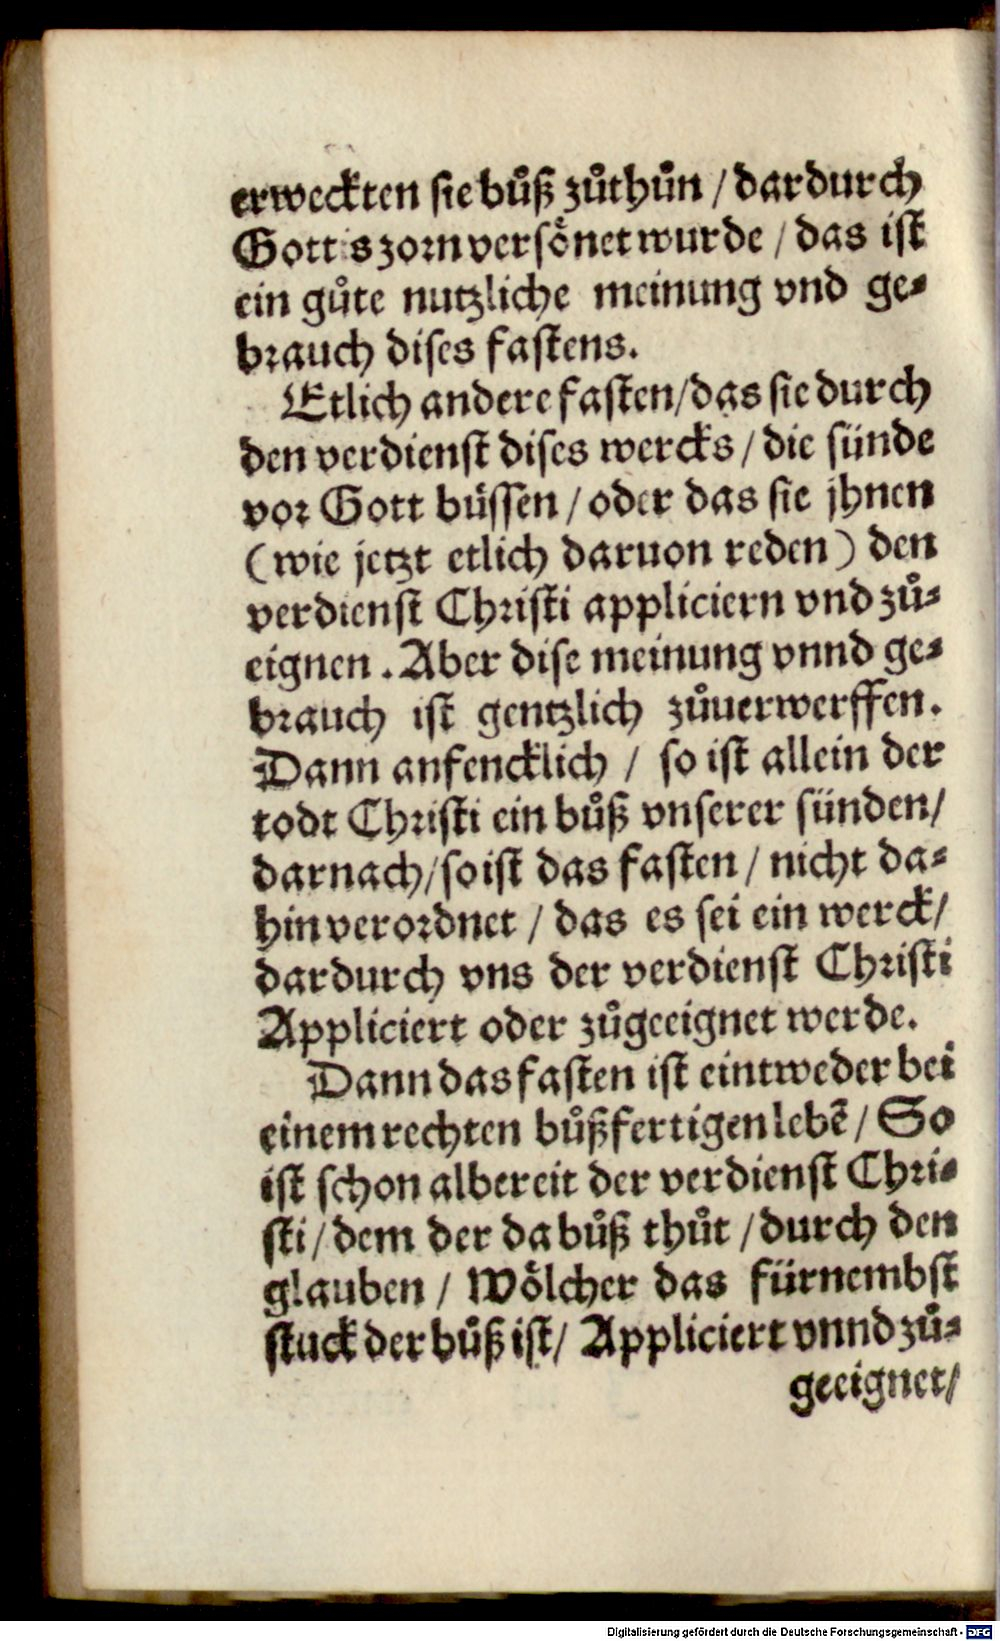 erweckten sie bůß zůthůn / dardurch
Gottis zorn versönet wurde / das ist
ein gůte nutzliche meinung vnd ge⸗
brauch dises fastens.
Etlich andere fasten/das sie durch
den verdienst dises wercks / die sünde
vor Gott büssen / oder das sie jhnen
(wie jetzt etlich daruon reden) den
verdienst Christi appliciern vnd zů⸗
eignen. Aber dise meinung vnnd ge⸗
brauch ist gentzlich zůuerwerffen.
Dann anfencklich / so ist allein der
todt Christi ein bůß vnserer sünden/
darnach/so ist das fasten / nicht da⸗
hin verordnet / das es sei ein werck/
dardurch vns der verdienst Christi
Appliciert oder zůgeeignet werde.
Dann das fasten ist eintweder bei
einem rechten bůßfertigen lebē / So
ist schon albereit der verdienst Chri⸗
sti / dem der da bůß thůt / durch den
glauben / Wölcher das fürnembst
stuck der bůß ist / Appliciert vnnd zů⸗
geeignet/
Digitalisierung gefördert durch die Deutsche Forschungsgemeinschaft - DFG